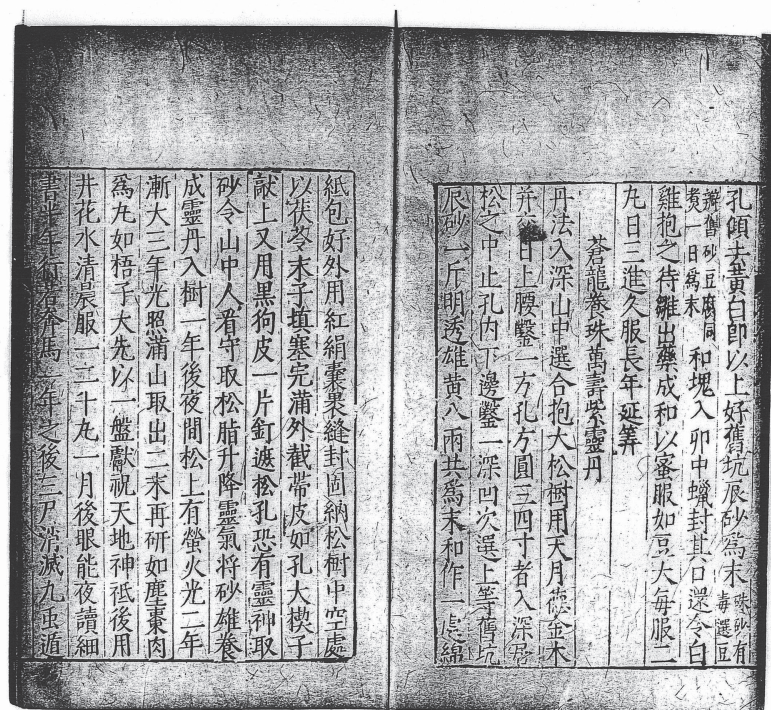 孔傾去黃白即以上好舊坑辰砂爲末硃砂有毒選豆
瓣舊砂豆腐同煑一日爲末和塊入卵中蠟封其口還令白
雞抱之待雛出藥成和以蜜服如豆大每服二
九日三進久服長年延筭
蒼龍養珠萬壽紫靈丹
丹法入深山中選合抱大松樹用天月德金木
并交日上腰鑿一方孔方圓三四寸者入深居
松之中止孔内下邊鑿一深凹次選上等舊坑
辰砂一斤明透雄黃八兩共爲末和作一處綿
紙包好外用紅絹囊裹縫封固納松樹中空處
以茯苓末子填塞完滿外截帶皮如孔大楔子
敲上又用黑狗皮一片釘遮松孔恐有靈神取
砂令山中人看守取松脂升降靈氣將砂雄養
成靈丹入樹一年後夜間松上有螢火光二年
漸大三年光照滿山取出二末再研如塵棗肉
爲丸如梧子大先以一盤獻祝天地神祇後用
井花水清晨服一二十丸一月後眼能夜讀細
書半年行若奔馬一年之後三尸消滅九虫遁